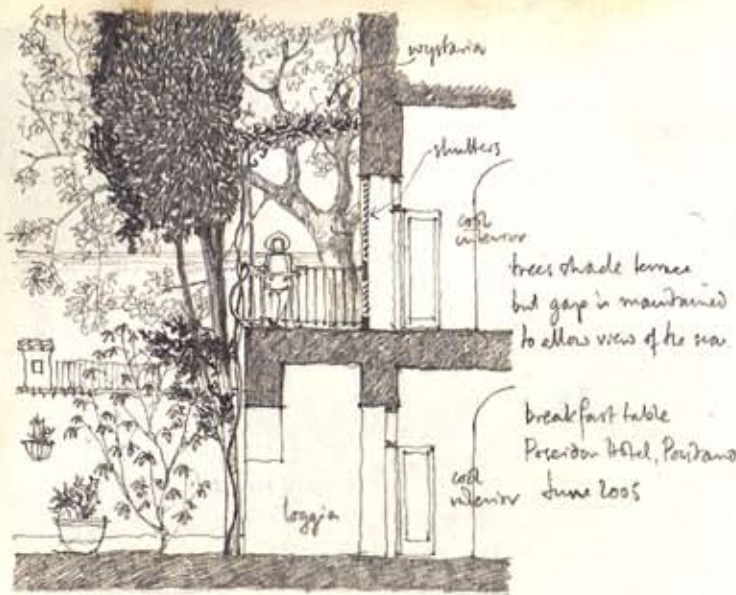 wystaria
shutters
cool
interior
trees shade terrace
but gap is maintained
to allow view of the sea.
breakfast table
Poseidon Hotel, Positano
June 2005
cool
interior
loggia